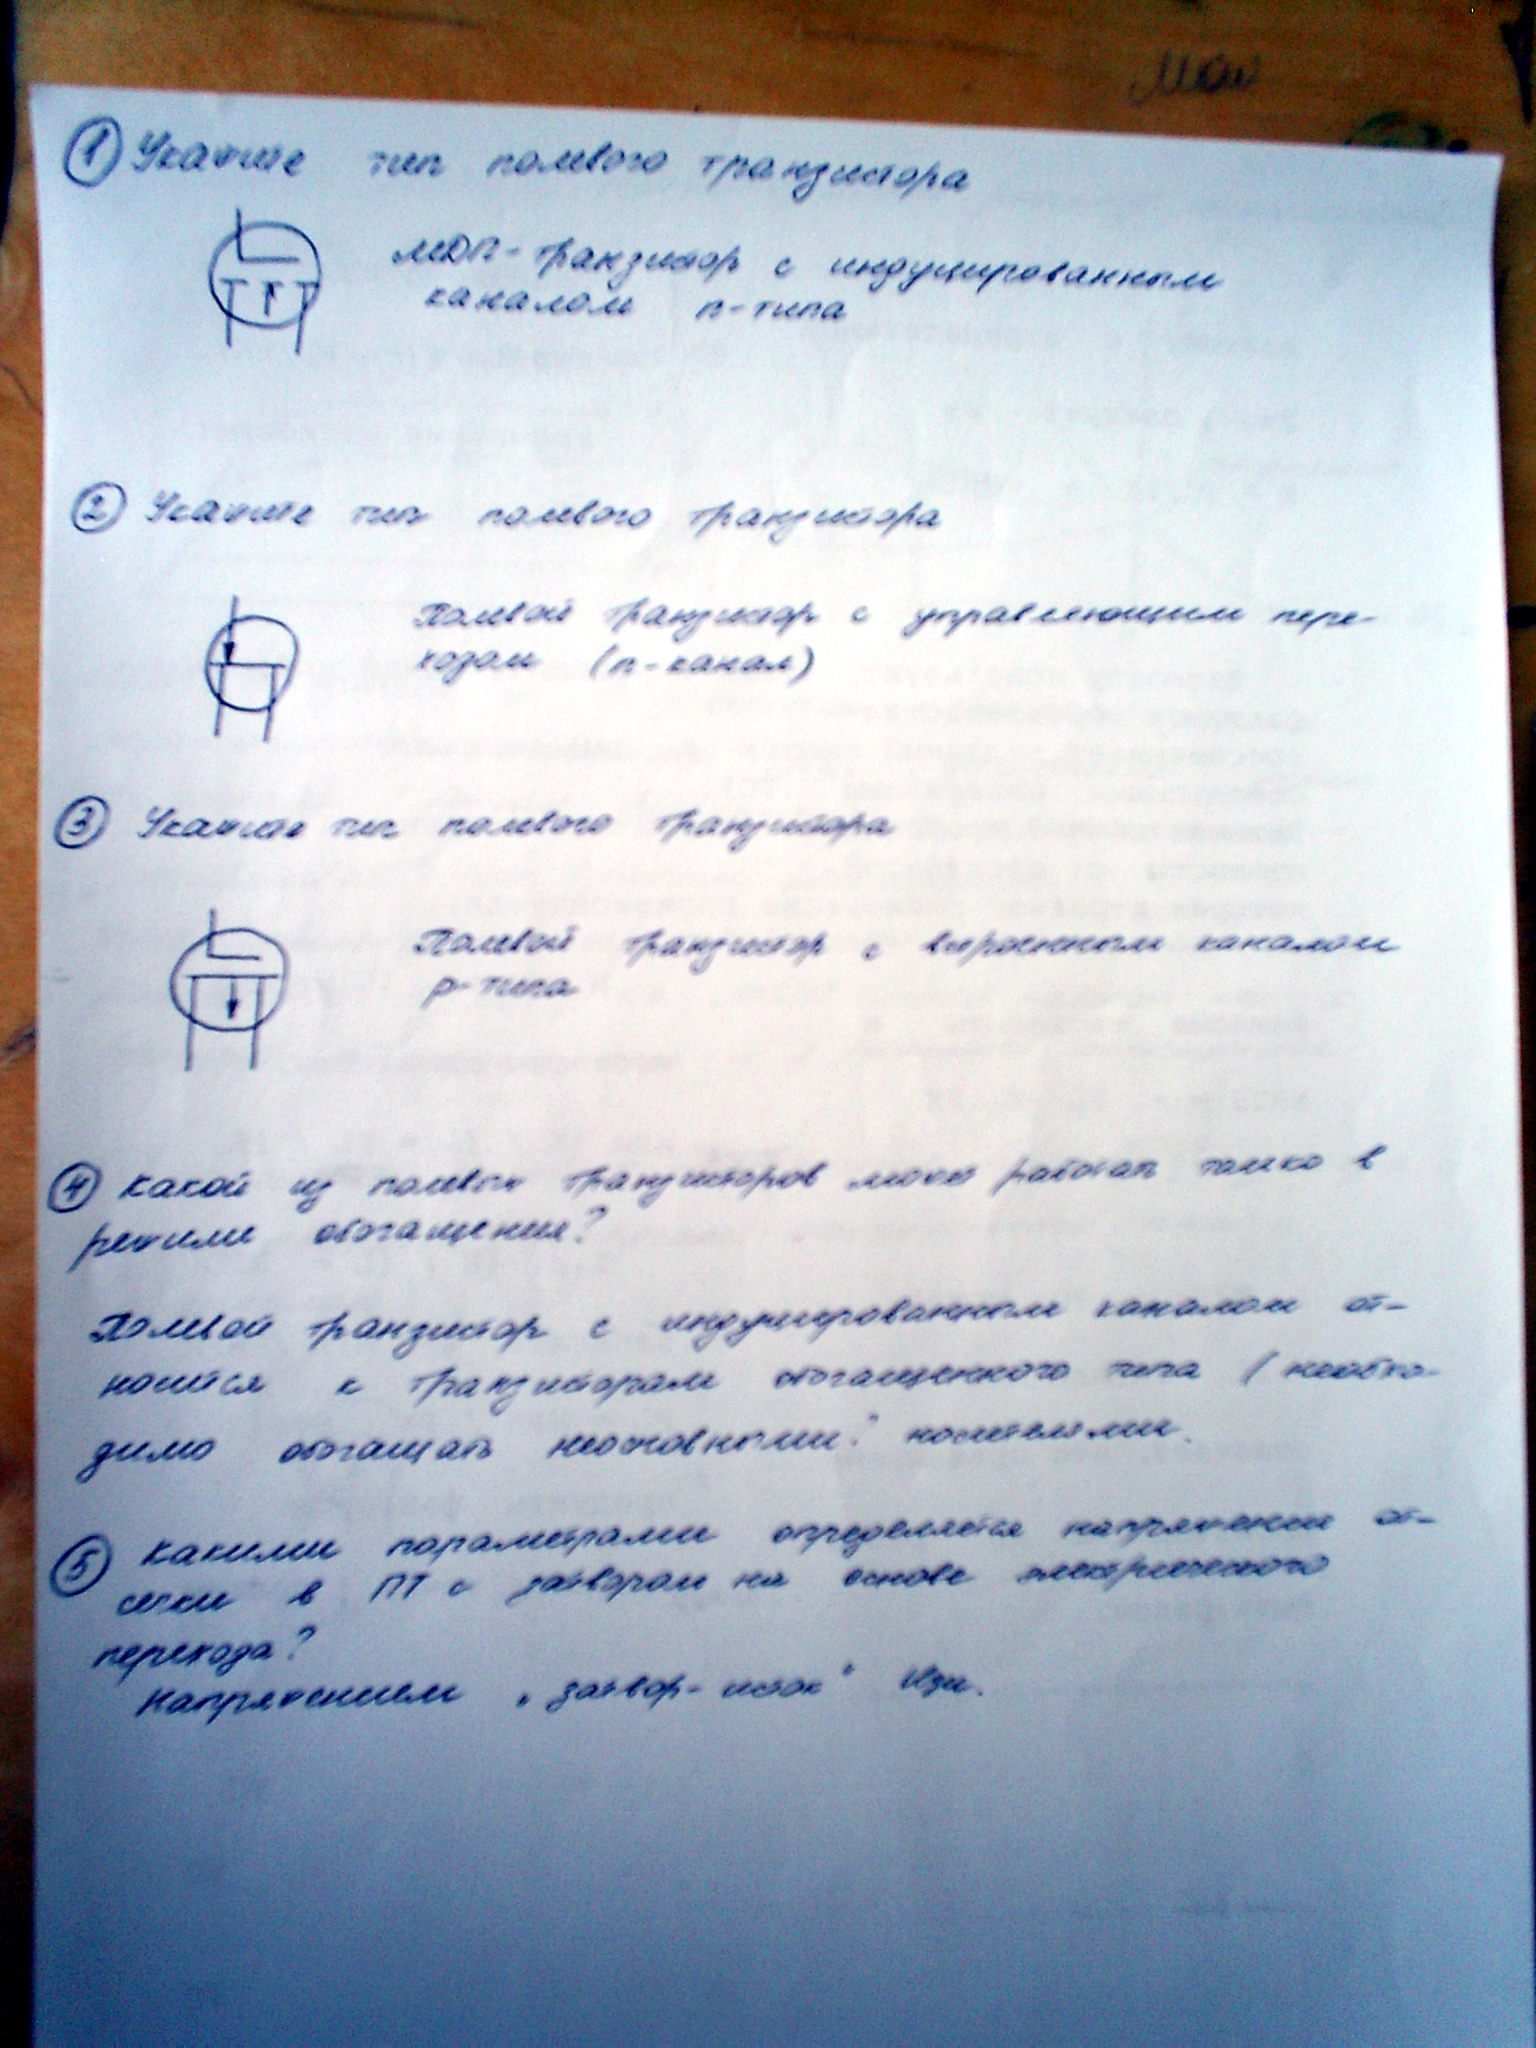 Мои
① Укажите тип полевого транзистора
МДП-транзистор с индуцированным
каналом n-типа
② Укажите тип полевого транзистора
Полевой транзистор с управляющим пере-
ходом (n-канал)
③ Укажите тип полевого транзистора
Полевой транзистор с встроенным каналом
p-типа
④ Какой из полевых транзисторов может работать только в
режиме обогащения?
Полевой транзистор с индуцированным каналом от-
носится к транзисторам обогащенного типа (необхо-
димо обогащать неосновными? носителями.
⑤ Какими параметрами определяется напряжение от-
сечки в ПТ с затвором на основе электрического
перехода?
Напряжением „затвор-исток“ Uзи.